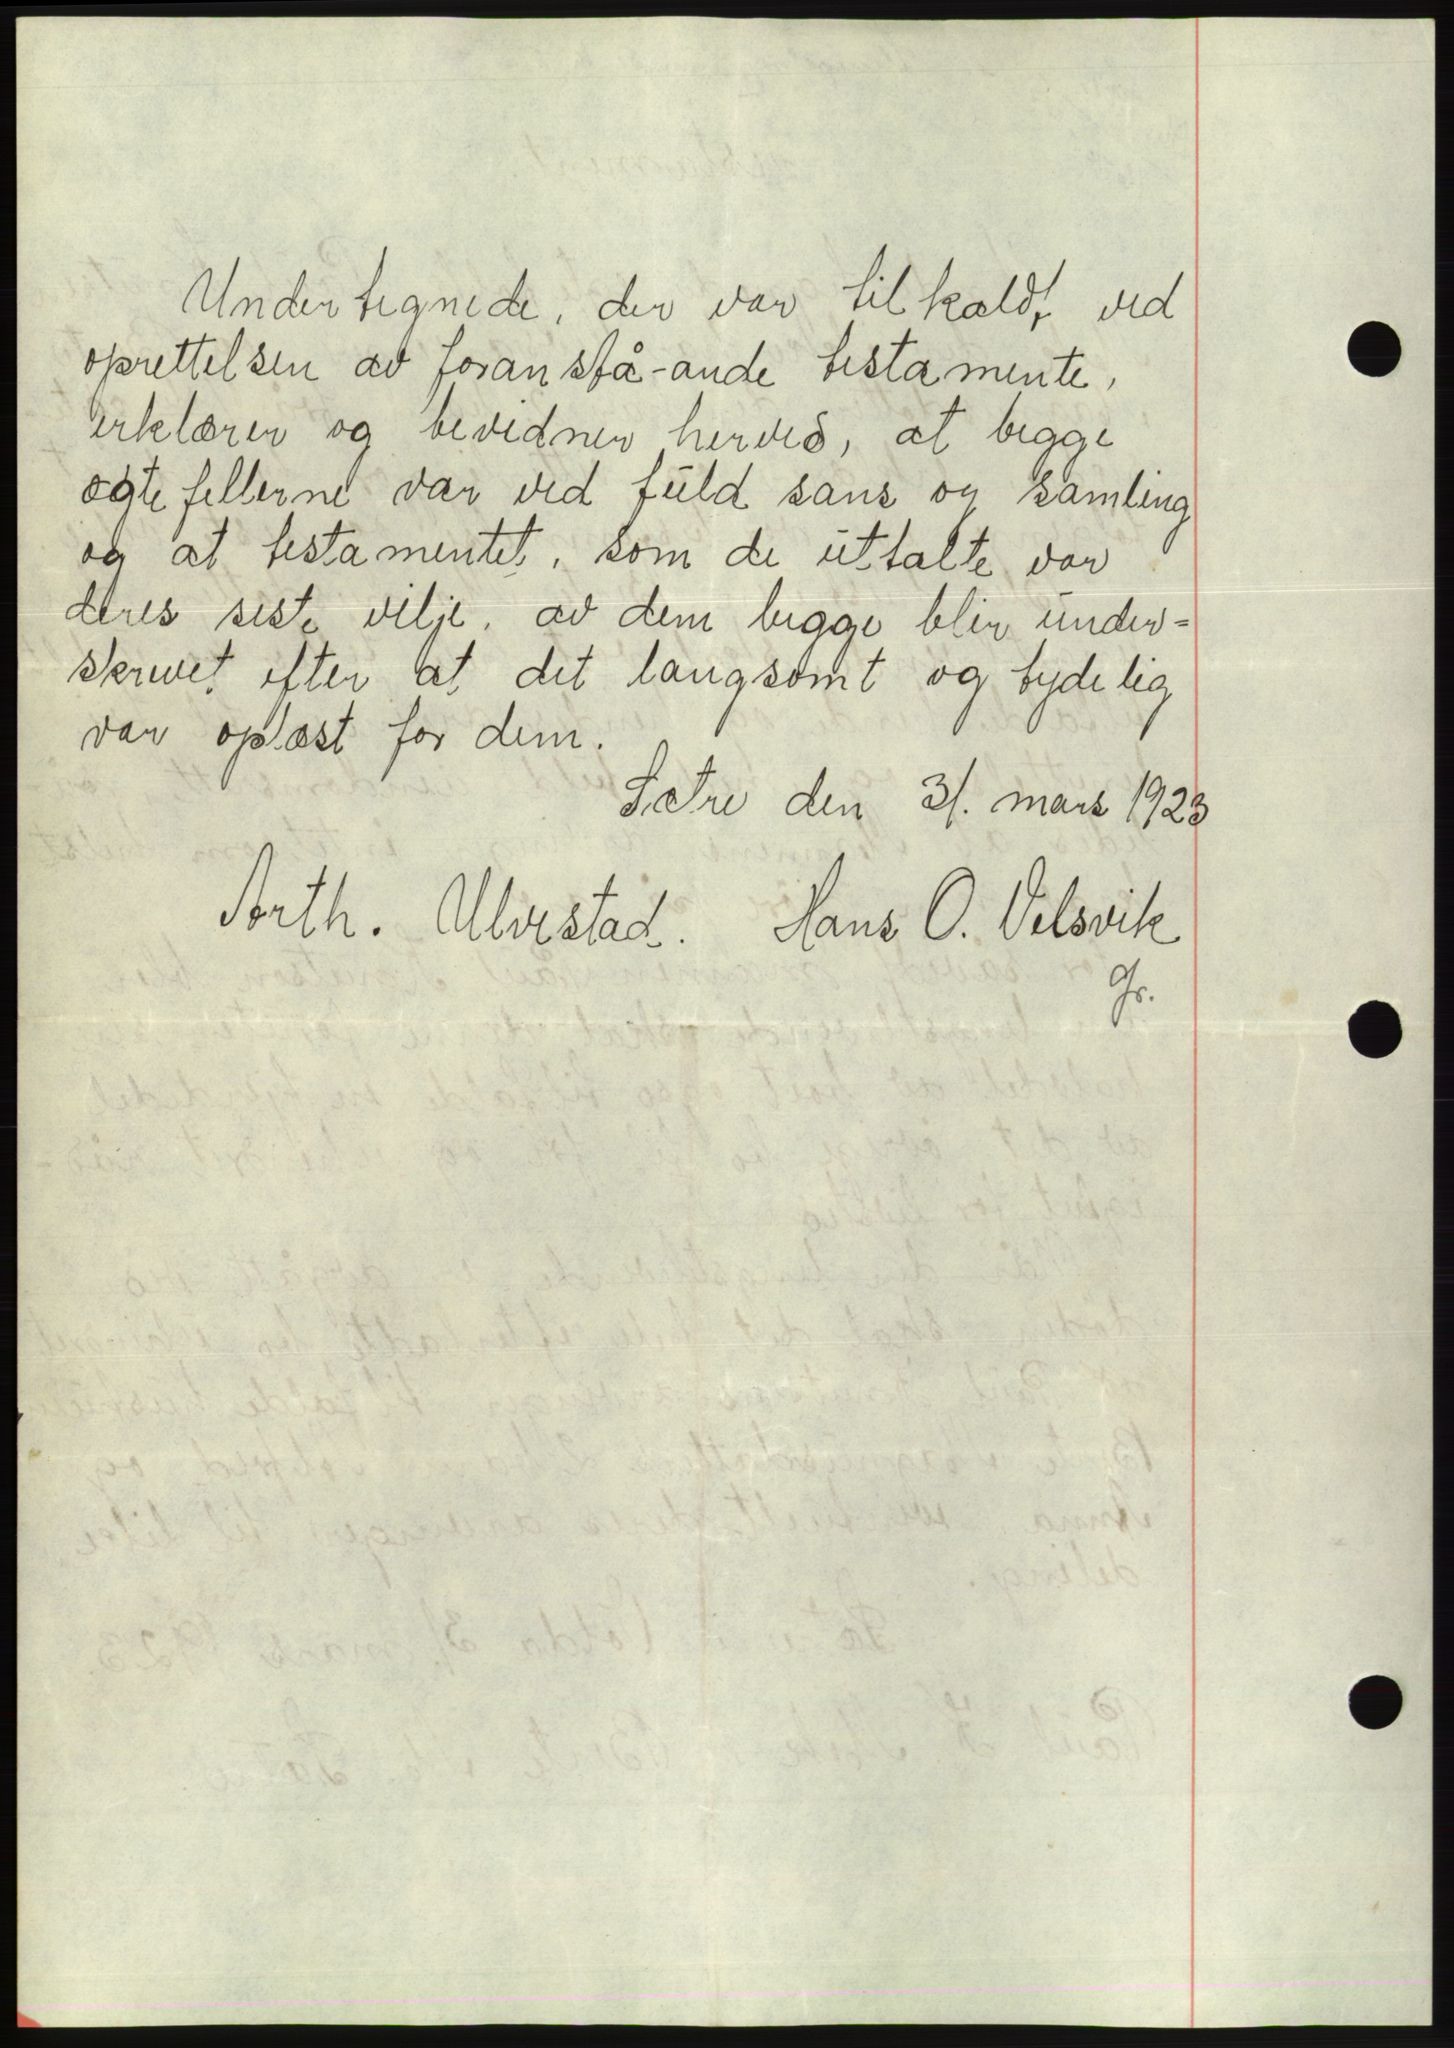 Undertegnede, der var tilkaldt ved
oprettelsen av foranstå-ande testamente,
erklærer og bevidner herved, at begge
ægtefellerne var ved fuld sans og samling
og at testamentet, som de uttalte var
deres siste vilje, av dem begge blir under=
skrevet efter at det langsomt og tydelig
var oplæst for dem.
Sætre den 3/. mars 1923
Arth. Ulvestad. Hans O. Velsvik
Gr.